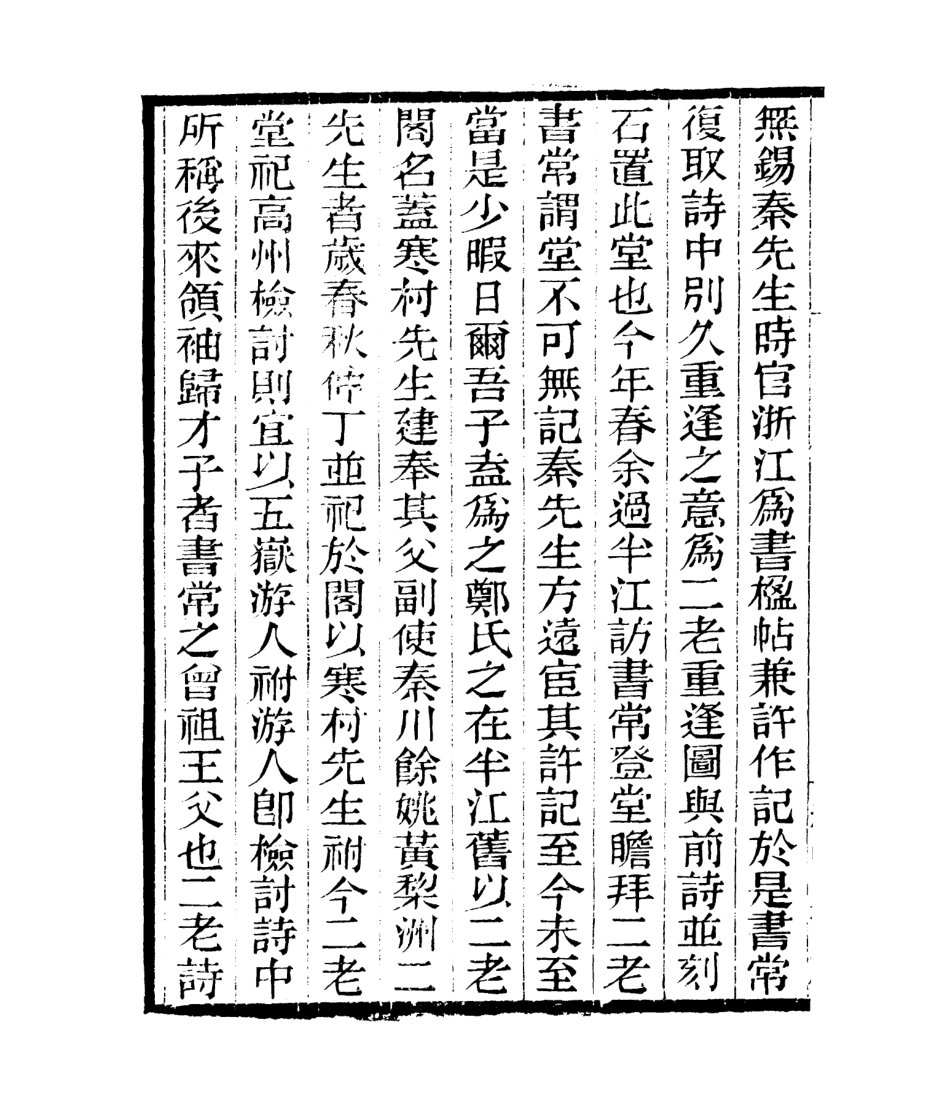 無錫秦先生時官浙江爲書楹帖兼許作記於是書常
復取詩中別久重逢之意爲二老重逢圖與前詩並刻
石置此堂也今年春余過半江訪書常登堂瞻拜二老
書常謂堂不可無記秦先生方遠宦其許記至今未至
當是少暇日爾吾子盍爲之鄭氏之在半江舊以二老
閣名蓋寒村先生建奉其父副使秦川餘姚黃棃洲二
先生者歲春秋仲丁並祀於閣以寒村先生祔今二老
堂祀高州檢討則宜以五嶽游人祔游人卽檢討詩中
所稱後來領袖歸才子者書常之曾祖王父也二老詩